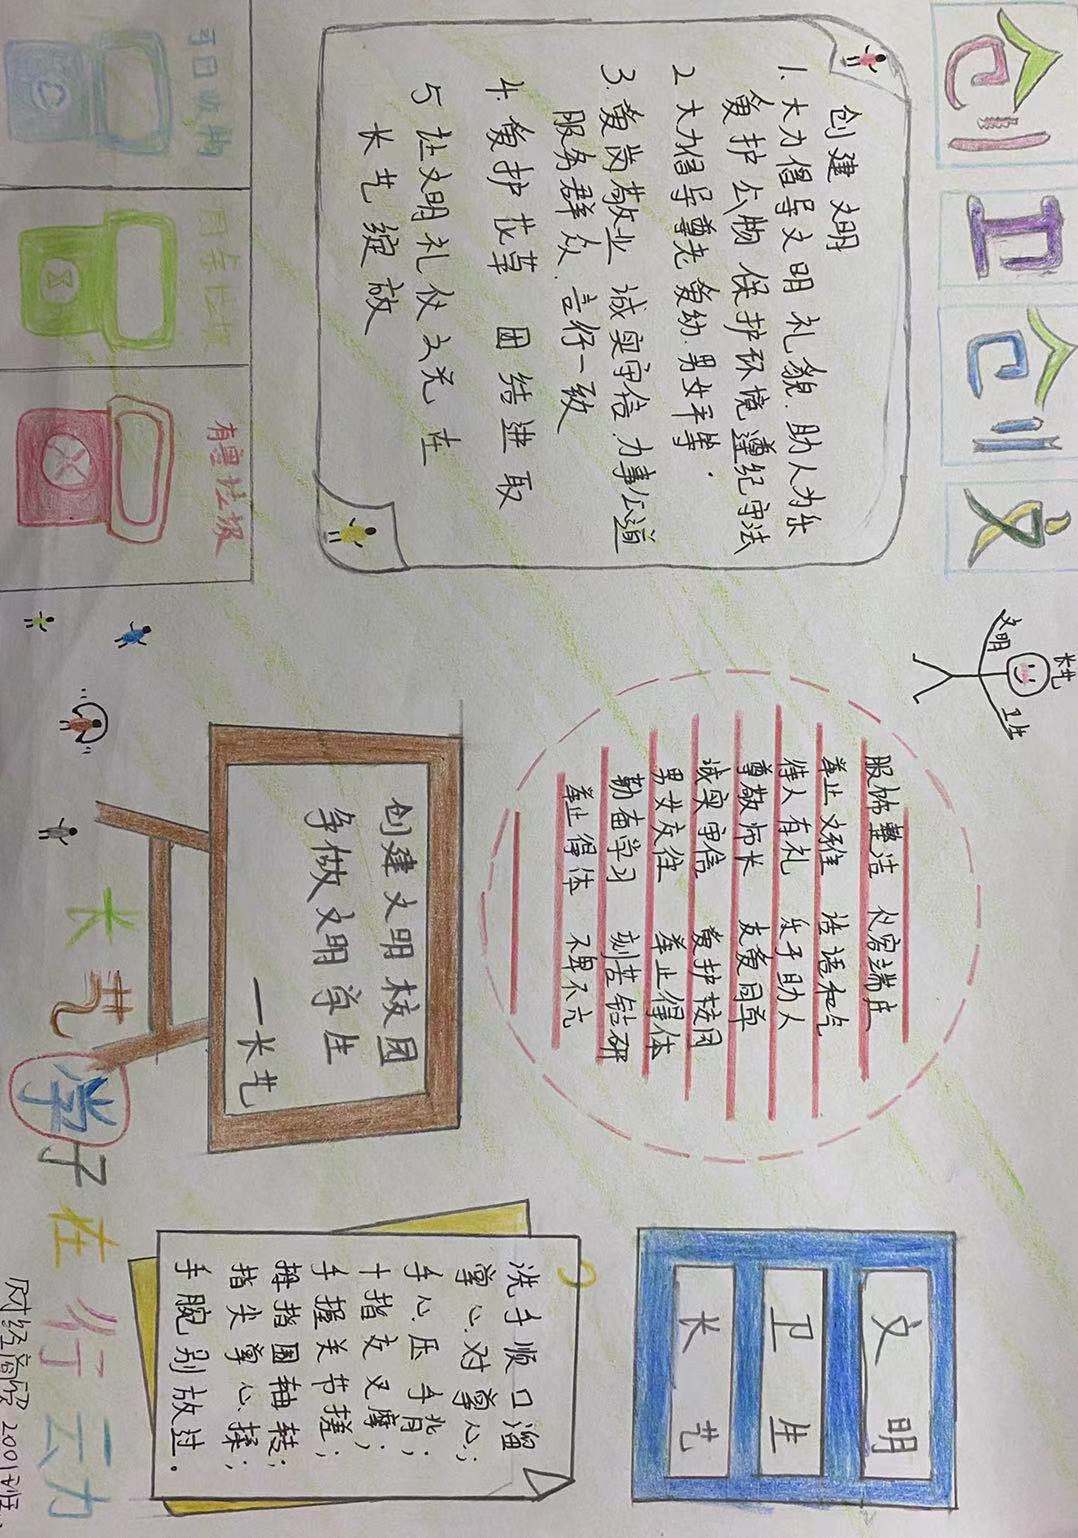 创卫创文
长艺
文明
卫生
创建文明
1.大力倡导文明礼貌.助人为乐
爱护公物 保护环境 遵纪守法
2.大力倡导尊老爱幼.男女平等.
3.爱岗敬业 诚实守信.办事公道
服务群众.言行一致
4.爱护花草 团结进取
5 让文明礼仪之光 在
长艺绽放
服饰整洁 仪容端庄
举止文雅 话语和气
待人有礼 乐于助人
尊敬师长 友爱同学
诚实守信 爱护校园
男女交往 举止得体
勤奋学习 刻苦钻研
举止得体 不卑不亢
文明
卫生
长艺
可回收物
厨余垃圾
有害垃圾
创建文明校园
争做文明学生
——长艺
洗手顺口溜
掌心对掌心;
手心压手背;
十指交叉摩;
手握关节搓;
拇指围轴转;
指尖掌心揉;
手腕别放过.
长艺学子在行动
财经商贸2001班